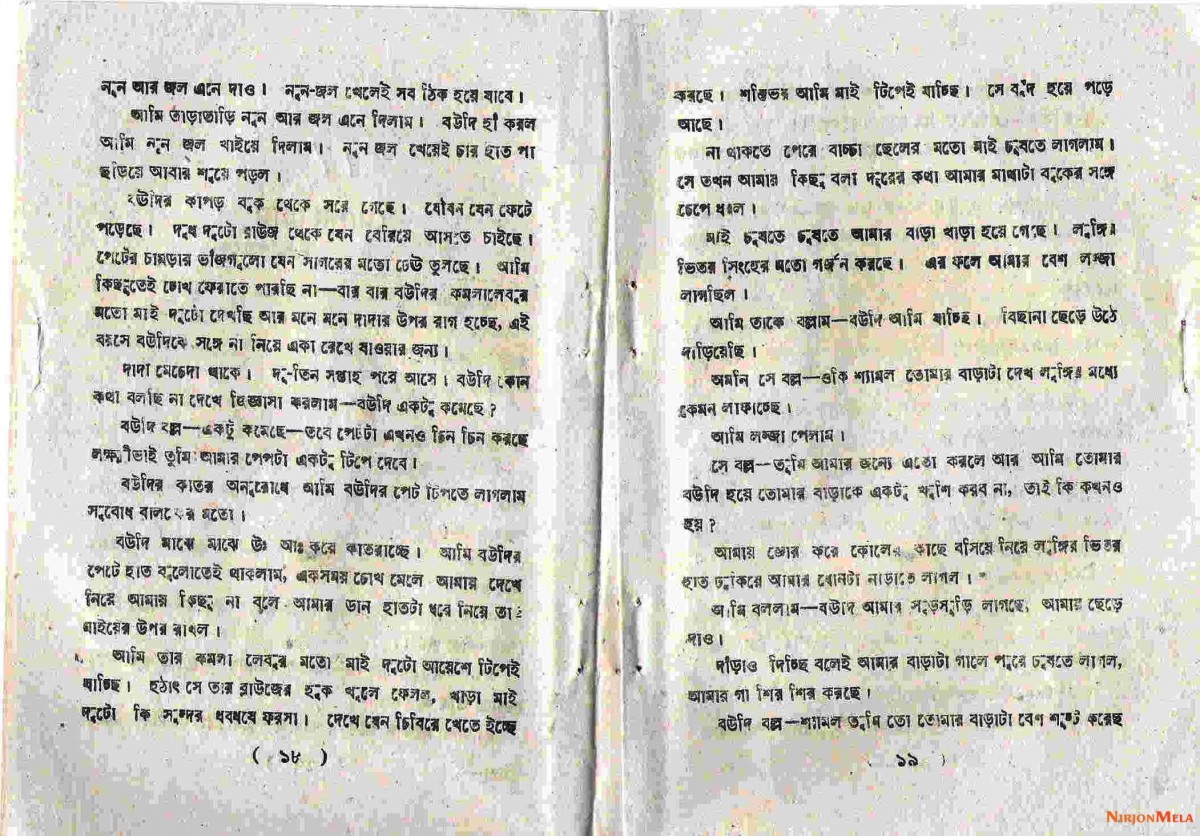 নুন আর জল এনে দাও। নুন-জল খেলেই সব ঠিক হয়ে যাবে।
আমি তাড়াতাড়ি নুন আর জল এনে দিলাম। বউদি হাঁ করল
আমি নুন জল খাইয়ে দিলাম। নুন জল খেয়েই চার হাত পা
ছড়িয়ে আবার শুয়ে পড়ল।
বউদির কাপড় বুক থেকে সরে গেছে। যৌবন যেন ফেটে
পড়েছে। দুধ দুটো ব্লাউজ থেকে যেন বেরিয়ে আসতে চাইছে।
পেটের চামড়ার ভাঁজগুলো যেন সাগরের মতো ঢেউ তুলছে। আমি
কিছুতেই চোখ ফেরাতে পারছি না—বার বার বউদির কমলালেবুর
মতো মাই দুটো দেখছি আর মনে মনে দাদার উপর রাগ হচ্ছে, এই
বয়সে বউদিকে সঙ্গে না নিয়ে একা রেখে যাওয়ার জন্য।
দাদা মেচেদা থাকে। দু-তিন সপ্তাহ পরে আসে। বউদি কোন
কথা বলছি না দেখে জিজ্ঞাসা করলাম—বউদি একটু কমেছে?
বউদি বল্ল—একটু কমেছে—তবে পেটটা এখনও চিন চিন করছে
লক্ষ্মীভাই তুমি আমার পেপটা একটু টিপে দেবে।
বউদির কাতর অনুরোধে আমি বউদির পেট টিপতে লাগলাম
সুবোধ বালকের মতো।
বউদি মাঝে মাঝে উঃ আঃ করে কাতরাচ্ছে। আমি বউদির
পেটে হাত বুলোতেই থাকলাম, একসময় চোখ মেলে আমায় দেখে
নিয়ে আমায় কিছু না বলে আমার ডান হাতটা ধরে নিয়ে তার
মাইয়ের উপর রাখল।
আমি তার কমলা লেবুর মতো মাই দুটো আয়েশে টিপেই
যাচ্ছি। হঠাৎ সে তার ব্লাউজের হুক খুলে ফেলল, খাড়া মাই
দুটো কি সুন্দর ধবধবে ফরসা। দেখে যেন চিবিয়ে খেতে ইচ্ছে
( ১৮ )
করছে। শক্তিভর আমি মাই টিপেই যাচ্ছি। সে বুঁদ হয়ে পড়ে
আছে।
না থাকতে পেরে বাচ্চা ছেলের মতো মাই চুষতে লাগলাম।
সে তখন আমায় কিছু বলা দূরের কথা আমার মাথাটা বুকের সঙ্গে
চেপে ধরল।
মাই চুষতে চুষতে আমার বাড়া খাড়া হয়ে গেছে। লুঙ্গির
ভিতর সিংহের মতো গর্জন করছে। এর ফলে আমার বেশ লজ্জা
লাগছিল।
আমি তাকে বল্লাম—বউদি আমি যাচ্ছি। বিছানা ছেড়ে উঠে
দাঁড়িয়েছি।
অমনি সে বল্ল—ওকি শ্যামল তোমার বাড়াটা দেখ লুঙ্গির মধ্যে
কেমন লাফাচ্ছে।
আমি লজ্জা পেলাম।
সে বল্ল—তুমি আমার জন্যে এতো করলে আর আমি তোমার
বউদি হয়ে তোমার বাড়াকে একটু খুশি করব না, তাই কি কখনও
হয়?
আমায় জোর করে কোলের কাছে বসিয়ে নিয়ে লুঙ্গির ভিতর
হাত ঢুকিয়ে আমার ধোনটা নাড়াতে লাগল।
আমি বললাম—বউদি আমার সুড়সুড়ি লাগছে, আমায় ছেড়ে
দাও।
দাঁড়াও দিচ্ছি বলেই আমার বাড়াটা গালে পুরে চুষতে লাগল,
আমার গা শির শির করছে।
বউদি বল্ল—শ্যামল তুমি তো তোমার বাড়াটা বেশ করেছ
১৯ )
NIRJONMELA